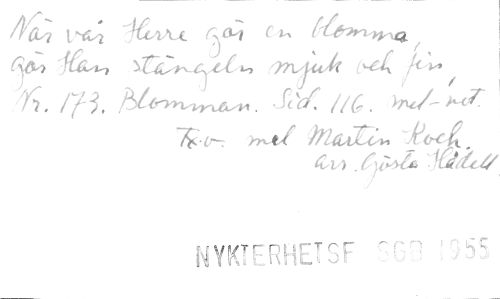 När vår Herre gör en blomma,
gör Han stängeln mjuk och fin,
Nr. 173. Blomman. Sid. 116. mel-vet.
Tx.o. mel Martin Koch.
arr. Gösta Hädell
NYKTERHETSF SGB 1955